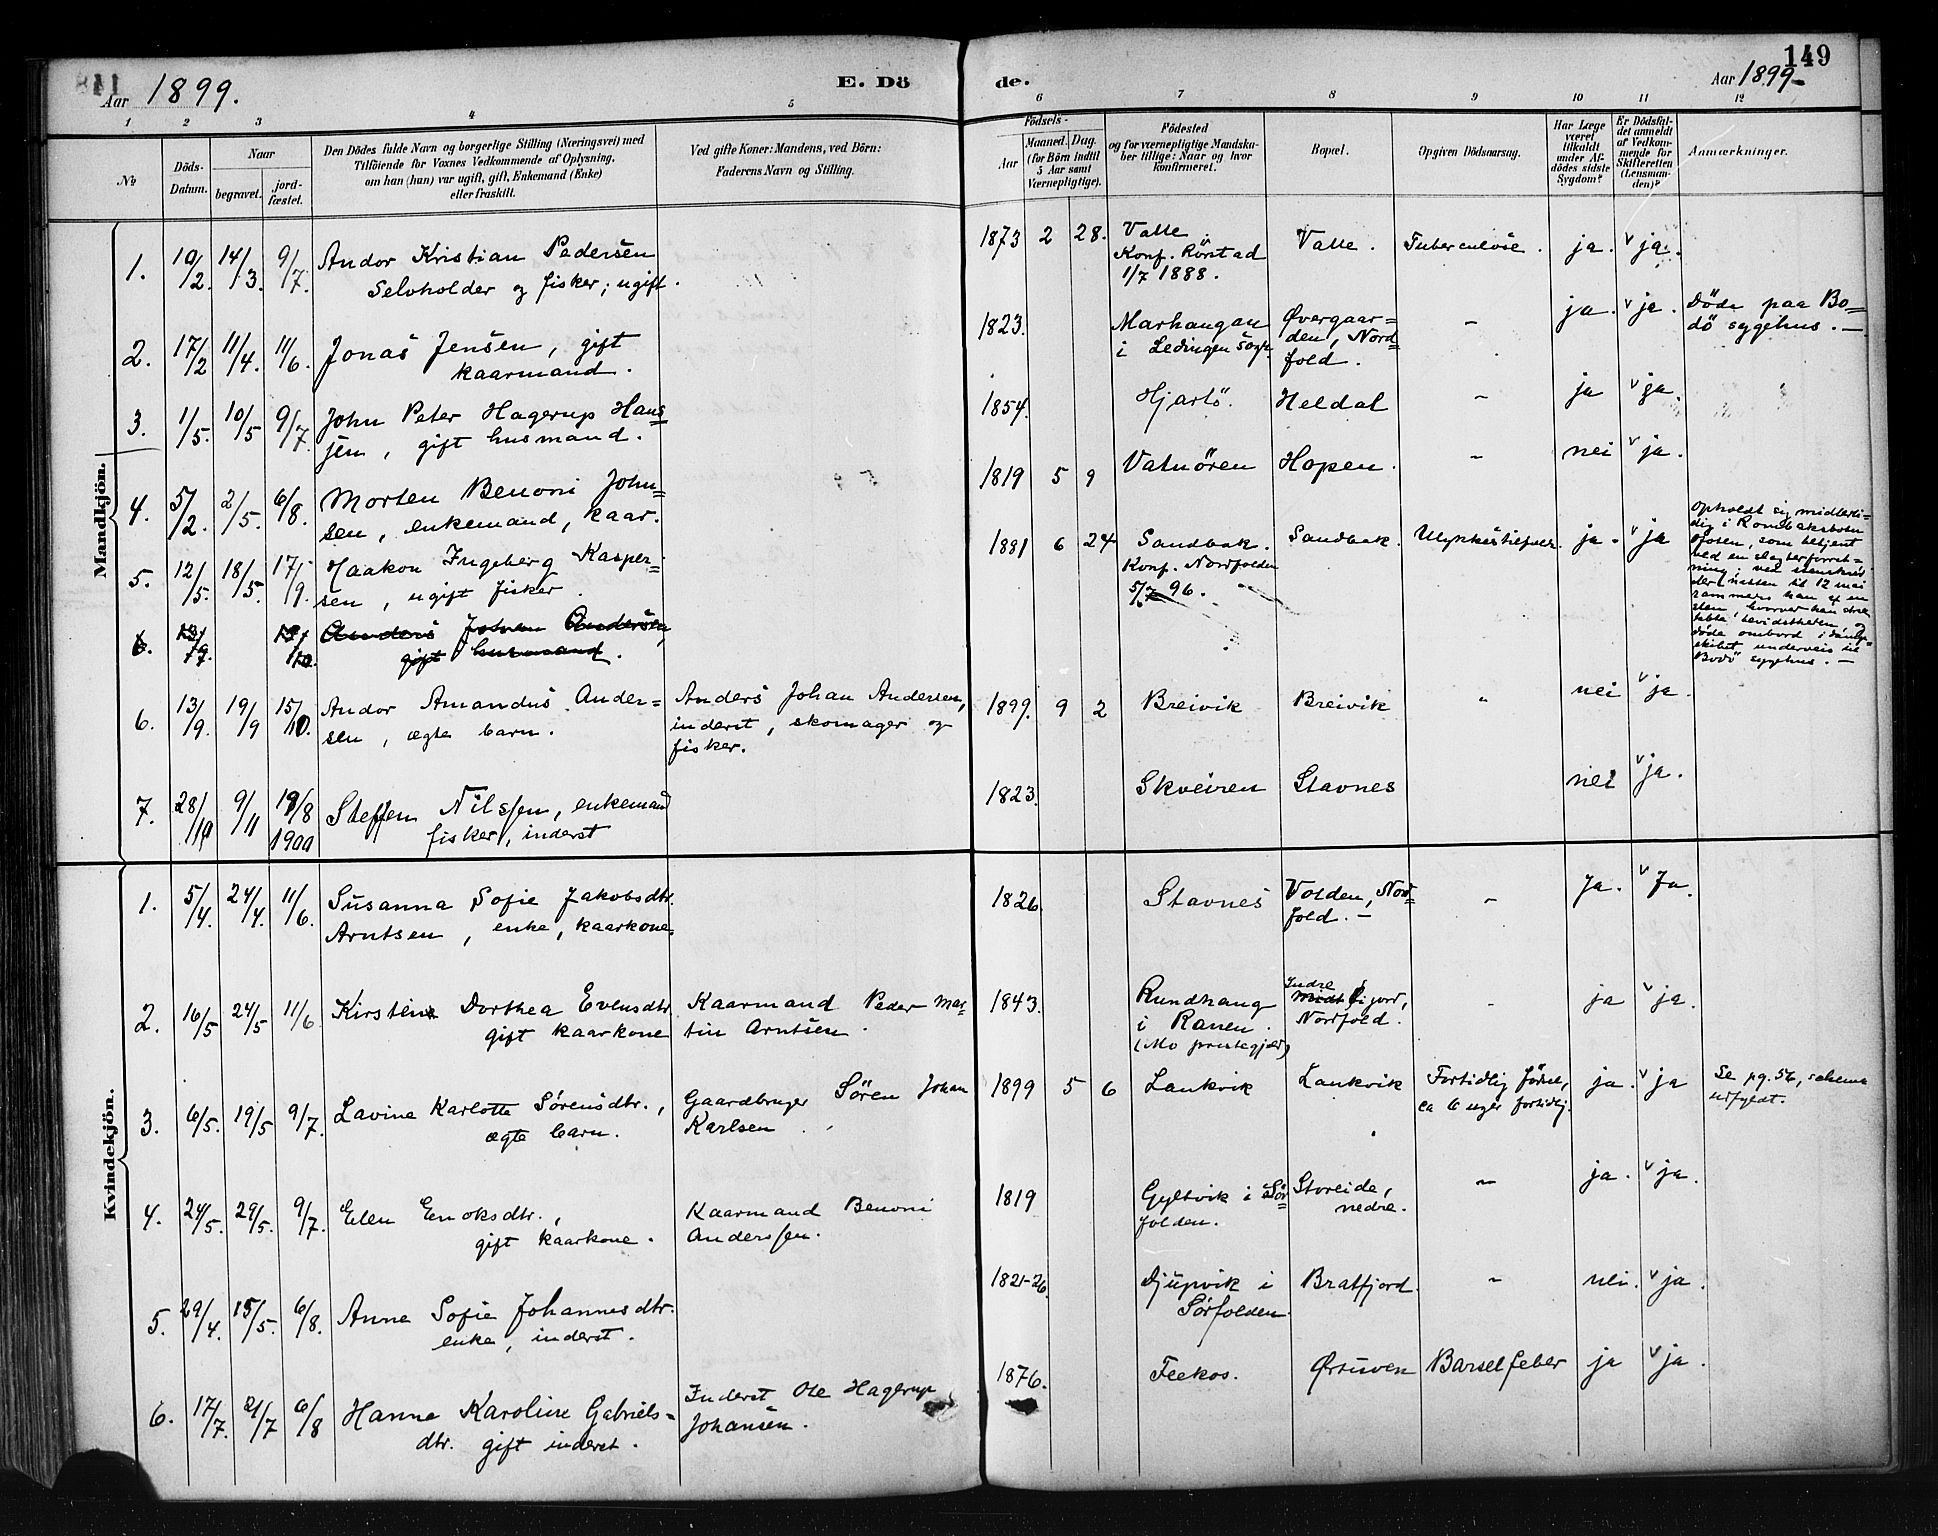 Aar 1899.
E. Dö
1 2 3 4 5
No
Döds-Datum.
Naar
begravet.
jord-fæstet.
Den Dödes fulde Navn og borgerlige Stilling (Næringsvei) med
Tilföiende for Voxnes Vedkommende af Oplysning,
om han (hun) var ugift, gift, Enkemand (Enke)
eller fraskilt.
Ved gifte Koner: Mandens, ved Börn:
Faderens Navn og Stilling.
Mandkjön.
1. 10/2 14/3. 9/7. Andor Kristian Pedersen
Selvholder og fisker; ugift.
2. 17/2 11/4. 11/6. Jonas Jensen, gift
kaarmand.
3. 1/5. 10/5 9/7. John Peter Hagerup Han-
sen, gift husmand.
4. 5/2. 2/5. 6/8. Morten Benoni John-
sen, enkemand, kaar.
5. 12/5. 18/5. 17/9. Haakon Ingeberg Kasper-
sen, ugift fisker.
6. Anders Johan Andersen,
gift husmand.
6. 13/9. 19/9 15/10. Andor Amandus Ander= Anders Johan Andersen,
sen, ægte barn. inderst, skomager og
fisker.
7. 28/10 9/11 19/8 1900 Steffen Nilssen, enkemand
fisker, inderst
Kvindekjön.
1. 5/4. 24/4. 11/6. Susanna Sofie Jakobsdtr.
Arntsen, enke, kaarkone.
2. 16/5 24/5 11/6. Kirstine Dorthea Evensdtr Kaarmand Peder Mar-
gift kaarkone tin Arntsen.
3. 6/5. 19/5 9/7. Lavine Karlotte Sørensdtr., Gaardbruger Sören Johan
ægte barn. Karlsen.
4. 24/5. 29/5. 9/7. Elen Enoksdtr., Kaarmand Benoni
gift kaarkone. Anderssen.
5. 29/4. 15/5. 6/8. Anne Sofie Johannesdtr.
enke, inderst.
6. 17/7. 21/7 6/8 Hanna Karoline Gabriels= Inderst Ole Hagerup
dtr. gift inderst. Johansen.
149
de.
Aar 1899-
6 7 8 9 10 11 12
Födsels-
Aar
Maaned. Dag.
(for Börn indtil
5 Aar samt
Værnepligtige).
Födested
og for værnepligtige Mandska-
ber tillige: Naar og hvor
konfirmeret.
Bopæl.
Opgiven Dödsaarsag.
Har Læge
været
tilkaldt
under Af-
dödes sidste
Sygdom?
Er Dödsfal-
det anmeldt
af Vedkom-
mende for
Skifteretten
(Lensman-
den)?
Anmærkninger.
1873 2 28. Valle. Valle. Tuberculose. ja. v ja.
Konf. Rörstad
1/7 1888.
1823. Marhaugan Øvergaar= - ja. v ja. Döde paa Bo-
i Lødingen Sogn den, Nord= dö sygehus. -
fold.
1854. Hjartö. Heldal - ja v ja.
1819 5 9 Vatnören Hopen. - nei v ja.
1881 6 24 Sandbak. Sandbak. Ulykkestilfælde. ja. v ja
Konf. Nordfolden
5/7 96.
Opholdt sig midlerti-
dig i Rombaksbotn
Ofoten, som betjent
ved en slagterforret-
ning; ved stenskred
der natten til 12 mai
rammes han af en
sten, hvorved han stra
tabte bevidstheten og
døde ombord i damp-
skibet underveis til
Bodö sygehus. -
1899. 9 2 Breivik Breivik " nei v ja.
1823. Skveiren Stavnes nei v ja.
1826. Stavnes Volden, Nord= - Ja. v Ja.
fold. -
1843. Rundhaug Indre Fjord, - ja v ja.
i Ranen. Nordfold.
(Mo prestegjeld)
1899 5 6 Lankvik Lankvik Fortidlig fødsel, ja. v ja Se pg. 56, schema
ca 6 uger fortidlig. udfyldt.
1819 Gyltvik i Sör= Storeide, - ja. v ja.
folden. nedre.
1821-26. Djupvik i Bratfjord. - nei. v ja.
Sörfolden.
1876. Feekos. Ørsuven Barselfeber ja v ja.